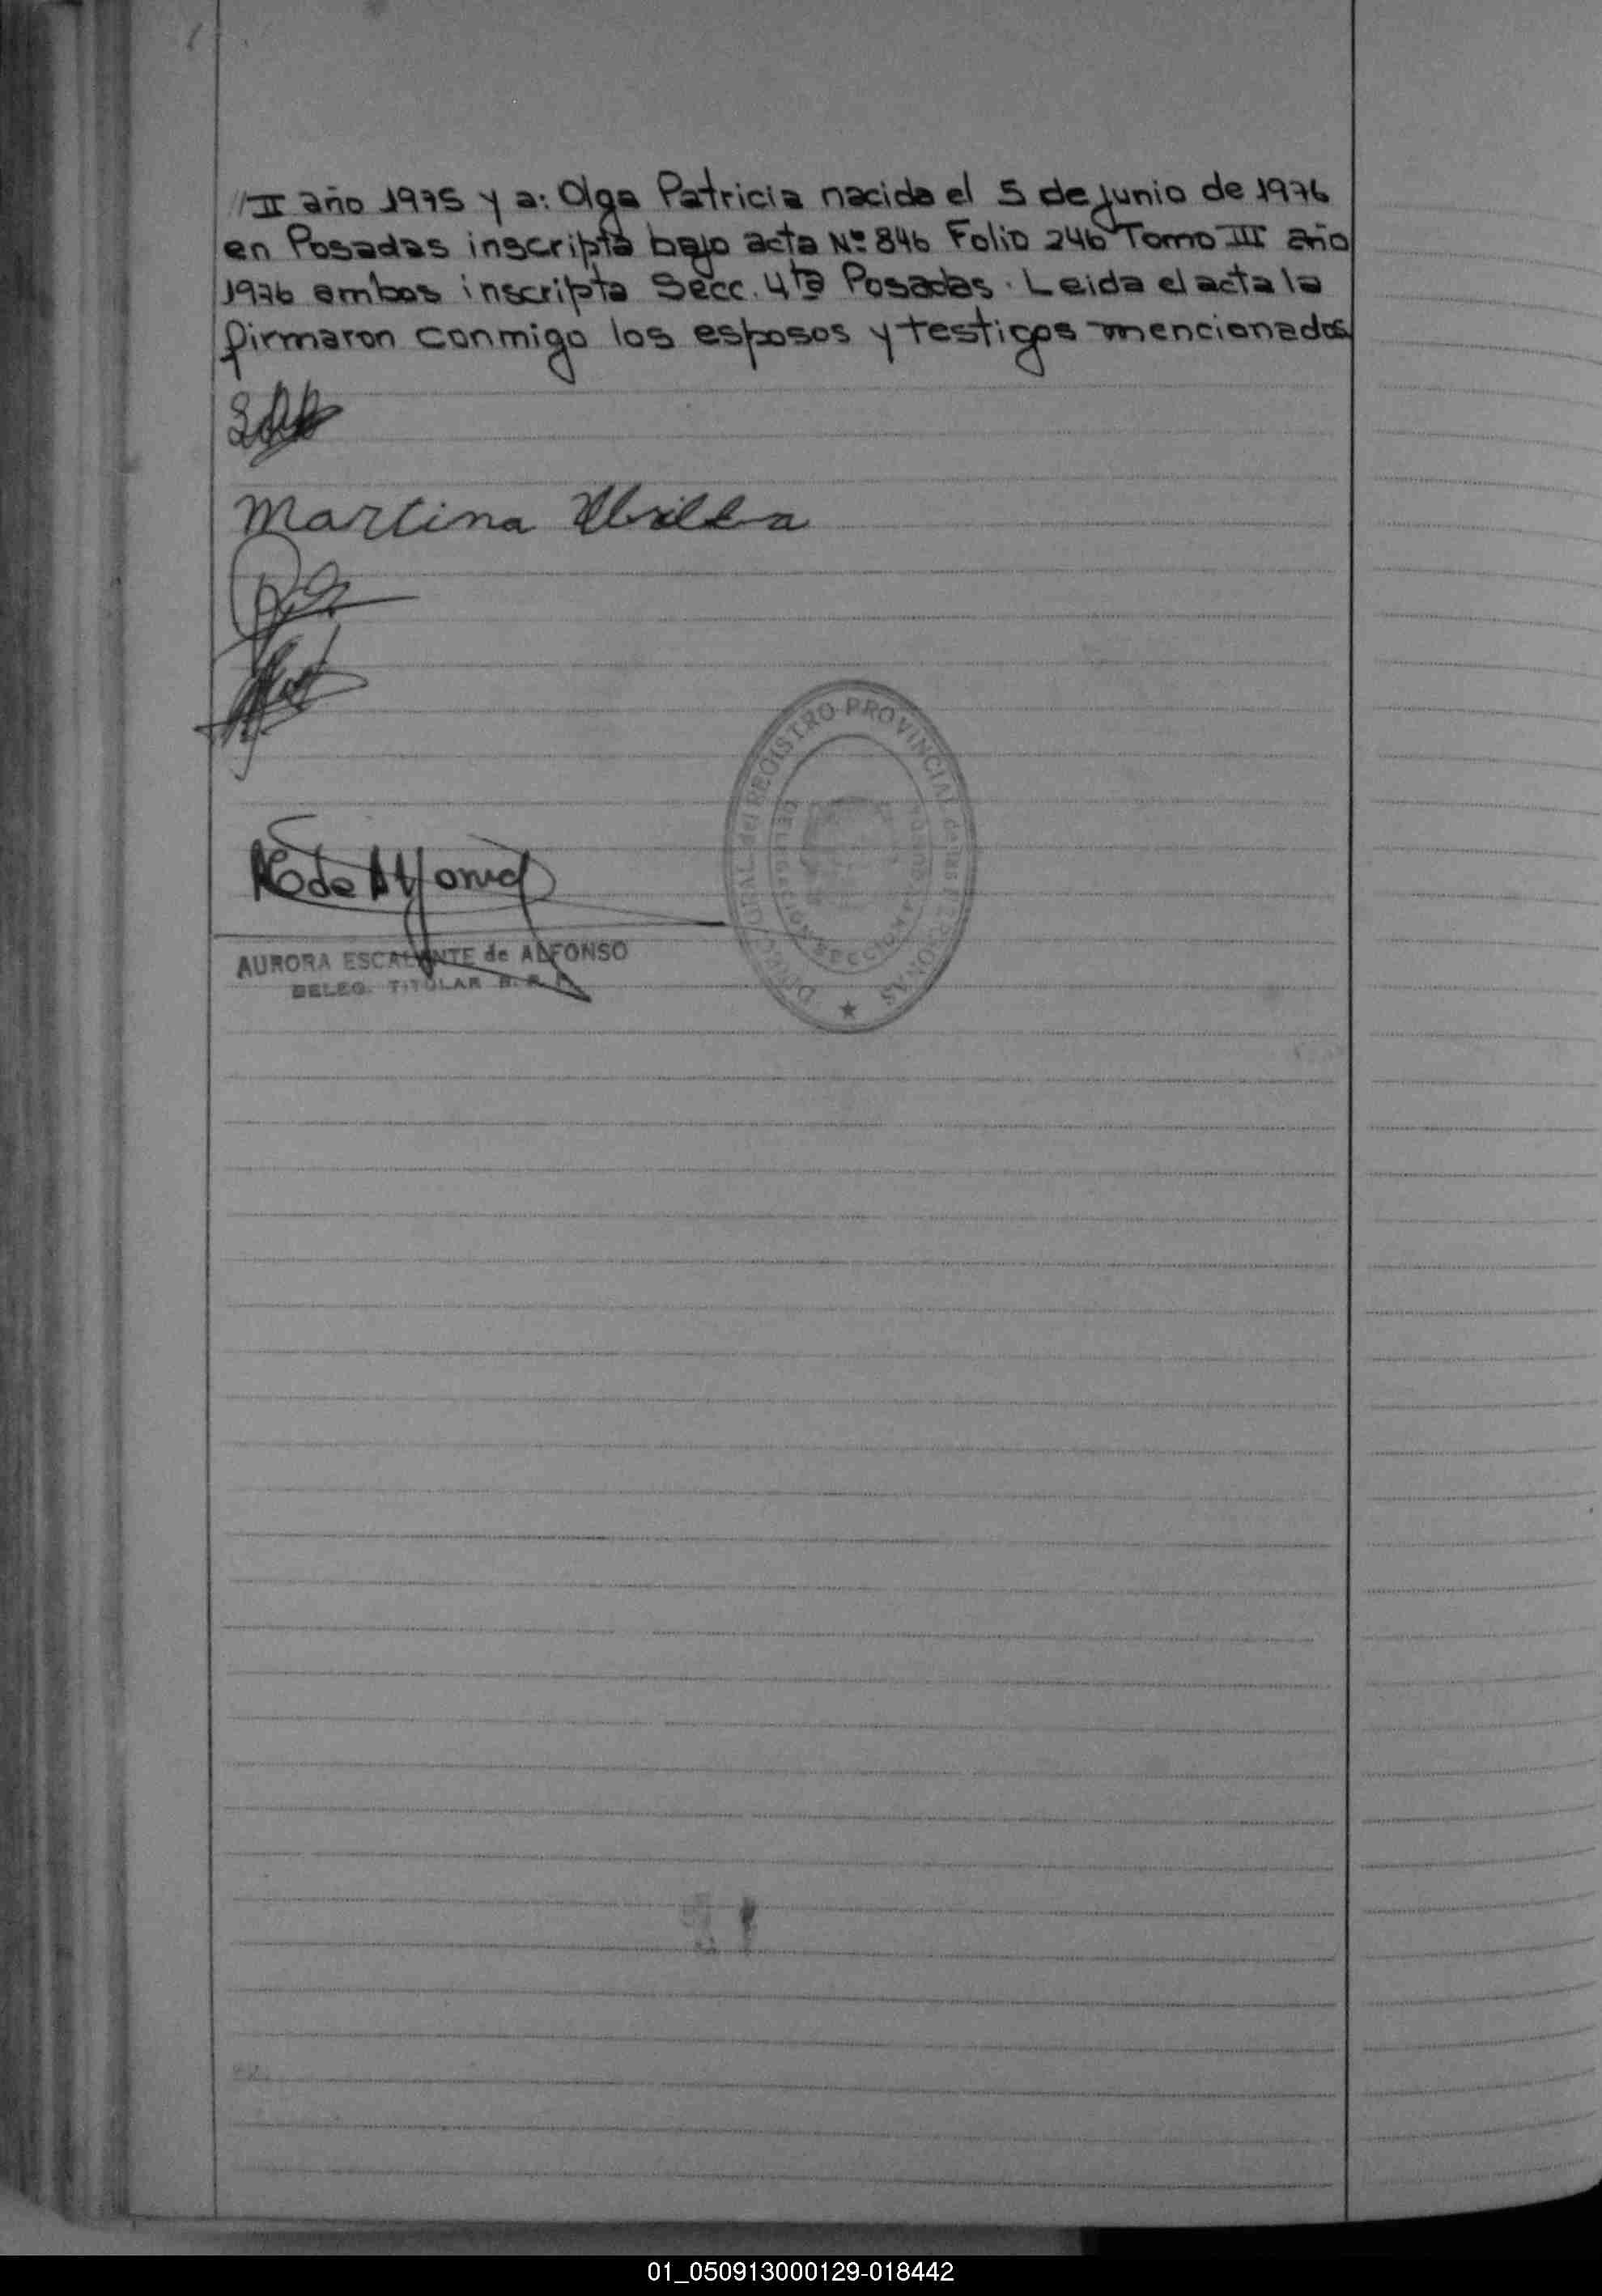 //II año 1975 y a: Olga Patricia nacida el 5 de junio de 1976
en Posadas inscripta bajo acta Nº 846 Folio 246 Tomo III año
1976 ambos inscripta Secc. 4ta Posadas. Leida el acta la
firmaron conmigo los esposos y testigos mencionados
Martina
AURORA ESCALANTE de ALFONSO
DELEG. TITULAR
REGISTRO PROVINCIAL de las PERSONAS
01_050913000129-018442